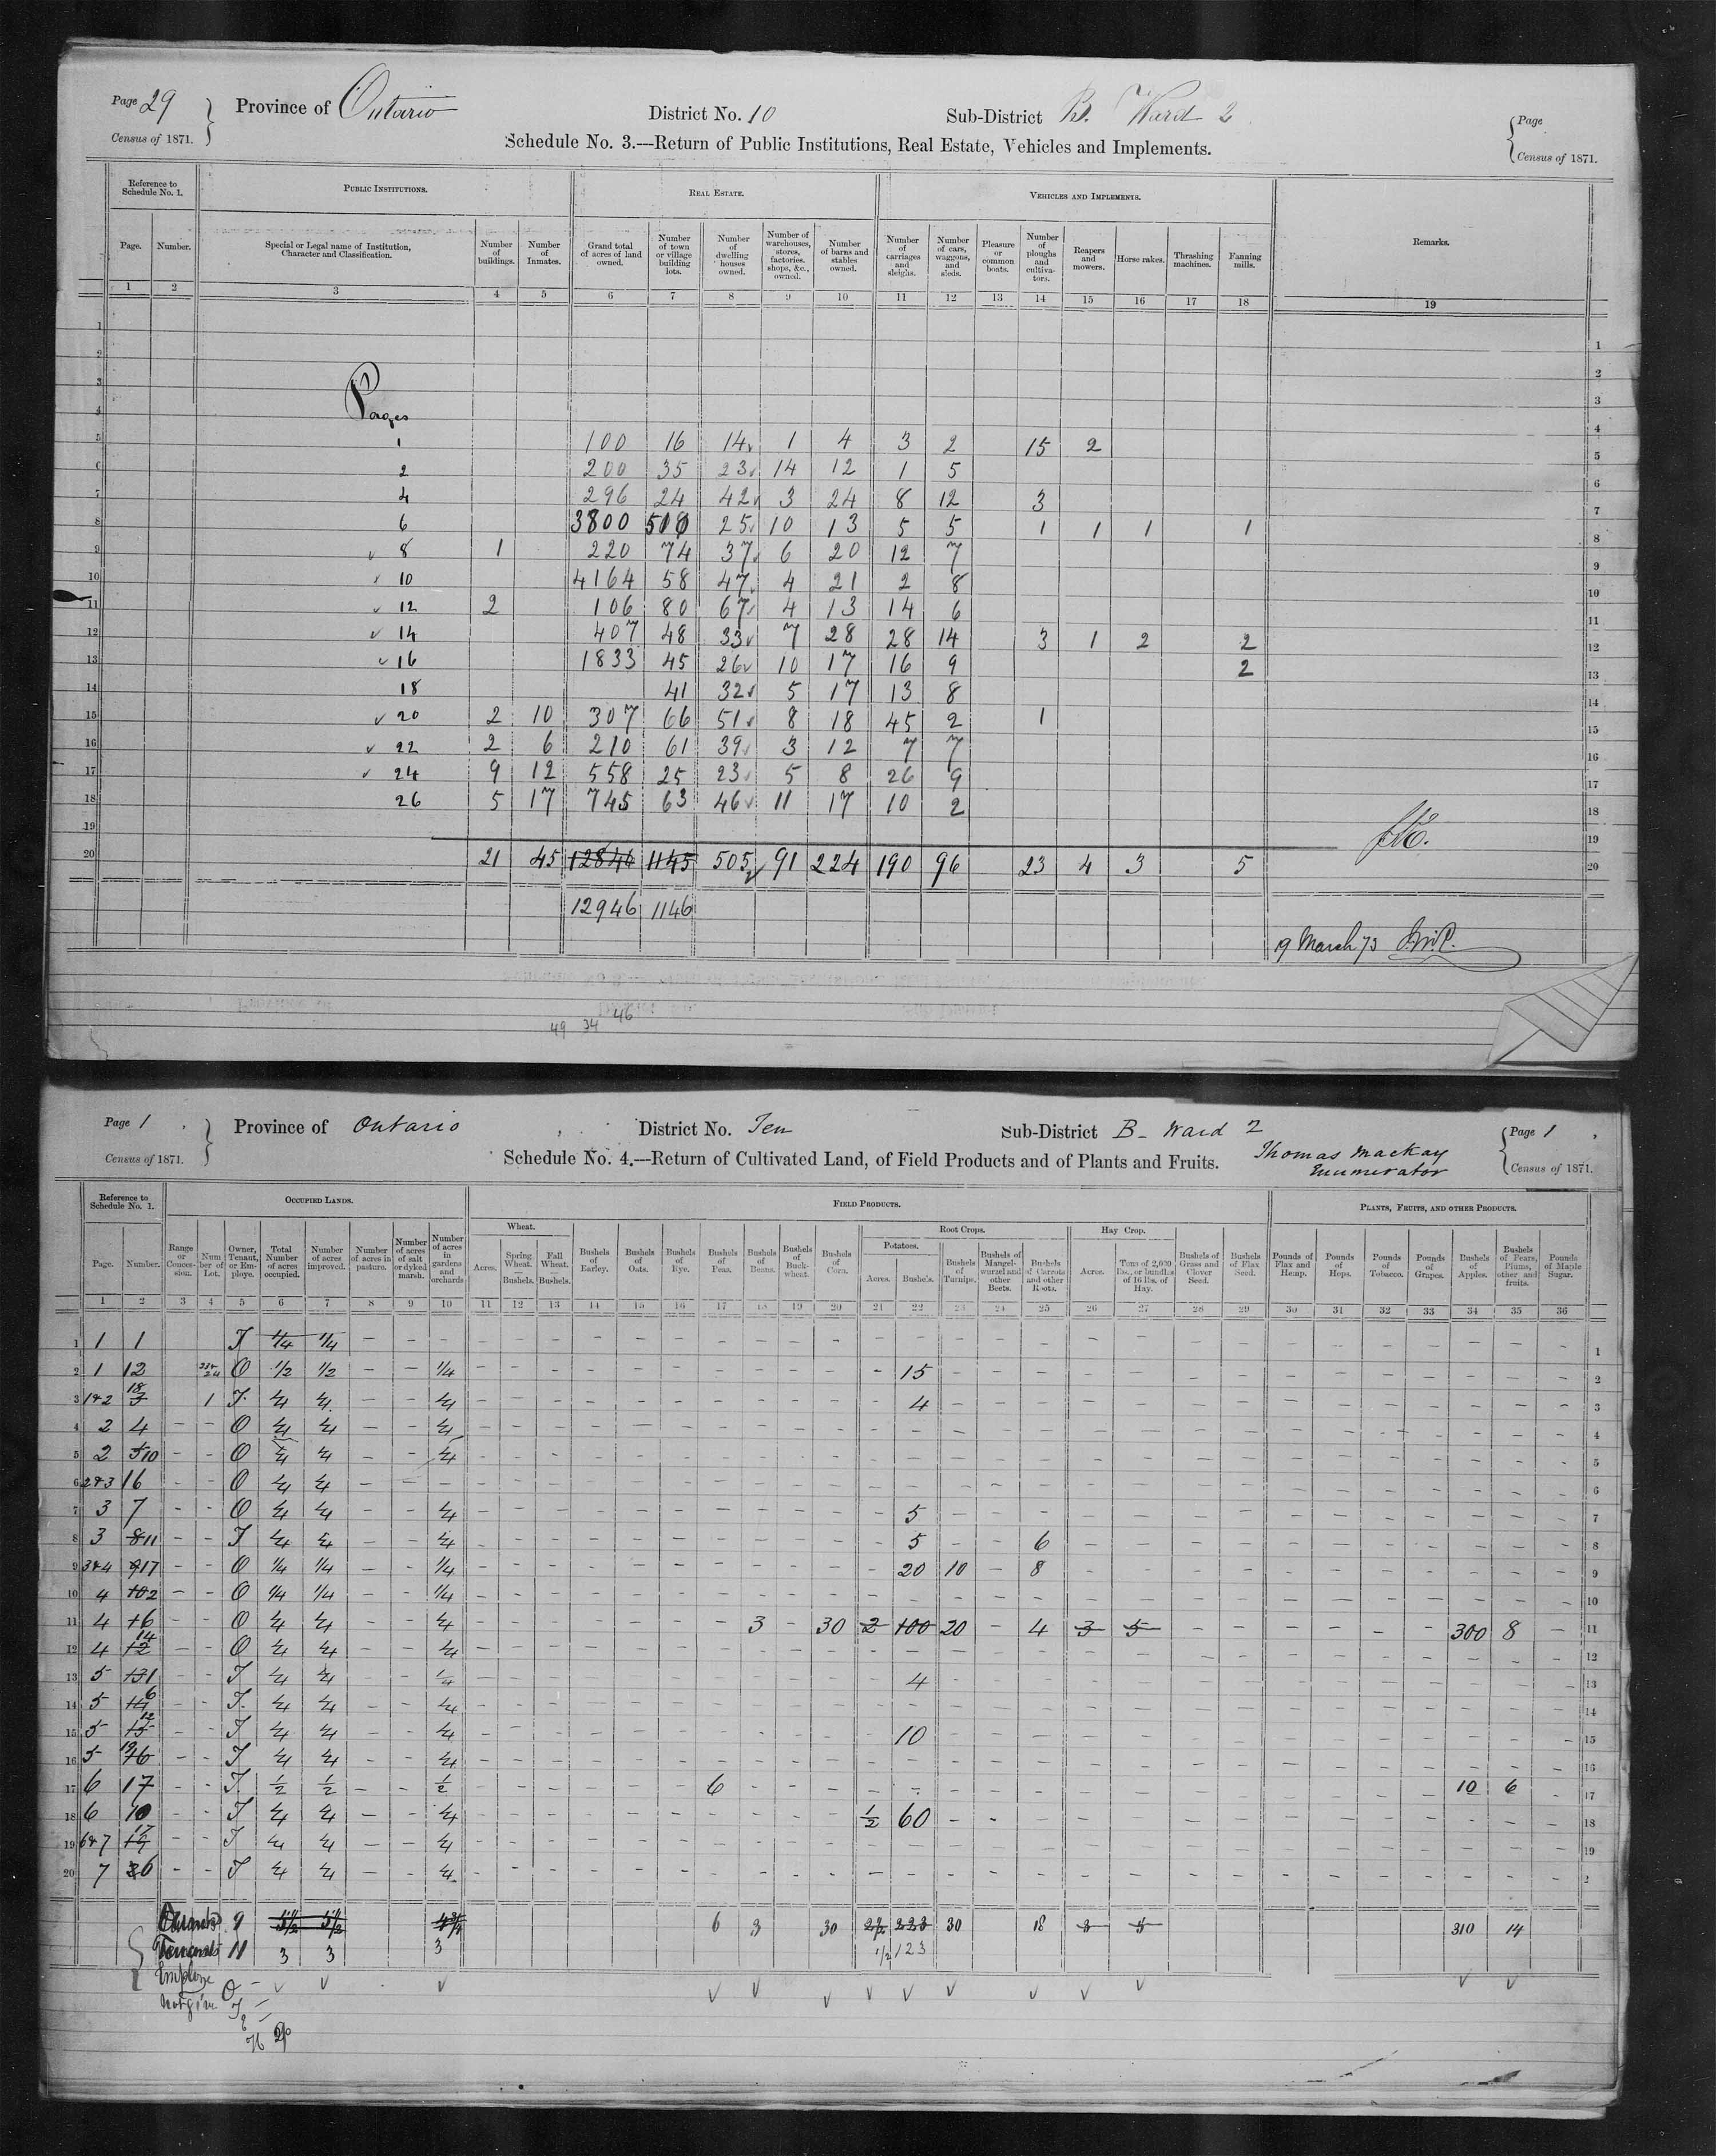 Page 29 Province of Ontario District No. 10 Sub-District B. Ward 2 Page
Census of 1871. Census of 1871.
Schedule No. 3.—Return of Public Institutions, Real Estate, Vehicles and Implements.
Reference to Schedule No. 1. PUBLIC INSTITUTIONS. REAL ESTATE. VEHICLES AND IMPLEMENTS. Remarks.
Page. Number. Special or Legal name of Institution, Character and Classification. Number of buildings. Number of Inmates. Grand total of acres of land owned. Number of town or village building lots. Number of dwelling houses owned. Number of warehouses, stores, factories, shops, &c., owned. Number of barns and stables owned. Number of carriages and sleighs. Number of cars, waggons, and sleds. Pleasure or common boats. Number of ploughs and cultivators. Reapers and mowers. Horse rakes. Thrashing machines. Fanning mills.
1 2 3 4 5 6 7 8 9 10 11 12 13 14 15 16 17 18 19
Pages
1 100 16 14 1 4 3 2 15 2
2 200 35 23 14 12 1 5
4 296 24 42 3 24 8 12 3
6 3800 510 25 10 13 5 5 1 1 1 1
8 1 220 74 37 6 20 12 7
10 4164 58 47 4 21 2 8
12 2 106 80 67 4 13 14 6
14 407 48 33 7 28 28 14 3 1 2 2
16 1833 45 26 10 17 16 9 2
18 41 32 5 17 13 8
20 2 10 307 66 51 8 18 45 2 1
22 2 6 210 61 39 3 12 7 7
24 9 12 558 25 23 5 8 26 9
26 5 17 745 63 46 11 17 10 2
21 45 12846 1145 505 91 224 190 96 23 4 3 5
12946 1146
19 March 73
49 34 46
Page 1 Province of Ontario District No. Ten Sub-District B- Ward 2 Page 1
Census of 1871. Census of 1871.
Schedule No. 4.—Return of Cultivated Land, of Field Products and of Plants and Fruits. Thomas Mackay
Enumerator
Reference to Schedule No. 1. OCCUPIED LANDS. FIELD PRODUCTS. PLANTS, FRUITS, AND OTHER PRODUCTS.
Wheat. Root Crops. Hay Crop.
Potatoes.
Page. Number. Range or Concession. Number of Lot. Owner, Tenant, or Employe. Total Number of acres occupied. Number of acres improved. Number of acres in pasture. Number of acres of salt or dyked marsh. Number of acres in gardens and orchards Acres. Spring Wheat.—Bushels. Fall Wheat.—Bushels. Bushels of Barley. Bushels of Oats. Bushels of Rye. Bushels of Peas. Bushels of Beans. Bushels of Buckwheat. Bushels of Corn. Acres. Bushels. Bushels of Turnips. Bushels of Mangel-wurzel and other Beets. Bushels of Carrots and other Roots. Acres. Tons of 2,000 lbs., or bundles of 16 lbs. of Hay. Bushels of Grass and Clover Seed. Bushels of Flax Seed. Pounds of Flax and Hemp. Pounds of Hops. Pounds of Tobacco. Pounds of Grapes. Bushels of Apples. Bushels of Pears, Plums, other and fruits. Pounds of Maple Sugar.
1 2 3 4 5 6 7 8 9 10 11 12 13 14 15 16 17 18 19 20 21 22 23 24 25 26 27 28 29 30 31 32 33 34 35 36
1 1 1 T 1/4 1/4
2 1 12 O 1/2 1/2 1/4 15
3 1&2 18 1 T. 1/4 1/4 1/4 4
4 2 4 O 1/4 1/4 1/4
5 2 10 O 1/4 1/4 1/4
6 2&3 16 O 1/4 1/4
7 3 7 O 1/4 1/4 1/4 5
8 3 11 T 1/4 1/4 1/4 5 6
9 3&4 17 O 1/4 1/4 1/4 20 10 8
10 4 2 O 1/4 1/4 1/4
11 4 6 O 1/4 1/4 1/4 3 30 2 100 20 4 3 5 300 8
12 4 14 O 1/4 1/4 1/4
13 5 1 T 1/4 1/4 1/4 4
14 5 6 T. 1/4 1/4 1/4
15 5 12 T 1/4 1/4 1/4 10
16 5 19 T 1/4 1/4 1/4
17 6 17 T. 1/2 1/2 1/2 6 10 6
18 6 10 T 1/4 1/4 1/4 1/2 60
19 6&7 17 T 1/4 1/4 1/4
20 7 6 T 1/4 1/4 1/4
9 5 1/2 5 1/2 4 3/4 6 3 30 2 1/2 223 30 18 3 5 310 14
Tenants 11 3 3 3 1/2 123
Employe